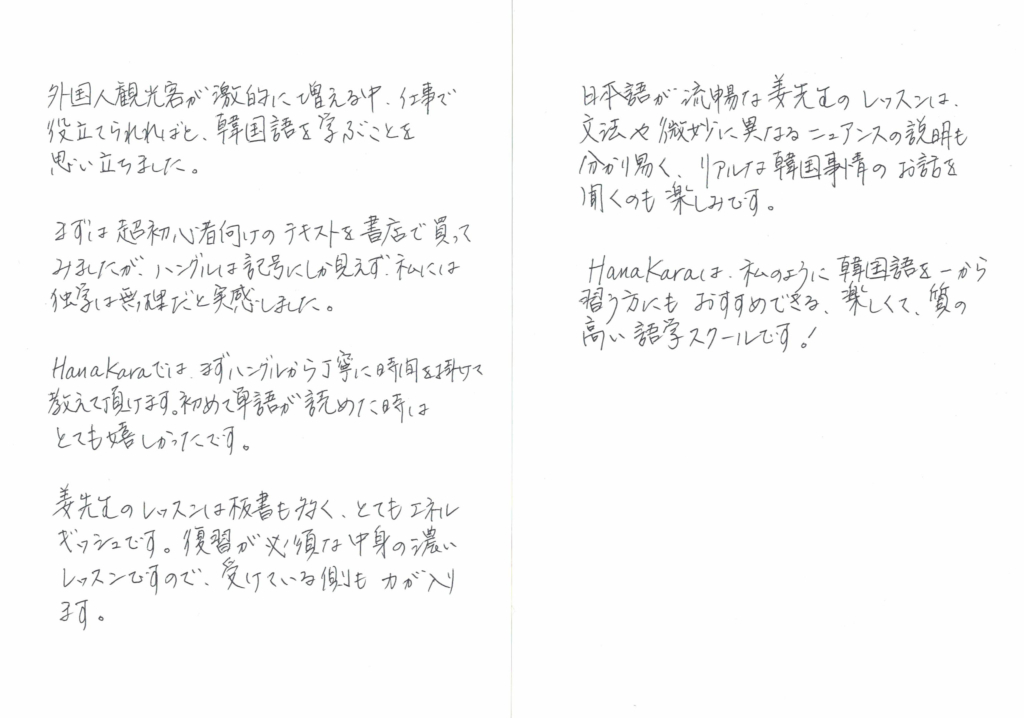 外国人観光客が激的に増える中、仕事で
役立てられればと、韓国語を学ぶことを
思い立ちました。
まずは超初心者向けのテキストを書店で買って
みましたが、ハングルは記号にしか見えず、私には
独学は無理だと実感しました。
HanaKaraでは、まずハングルから丁寧に時間を掛けて
教えて頂けます。初めて単語が読めた時は
とても嬉しかったです。
姜先生のレッスンは板書も多く、とてもエネル
ギッシュです。復習が必須な中身の濃い
レッスンですので、受けている側も力が入り
ます。
日本語が流暢な姜先生のレッスンは、
文法や微妙に異なるニュアンスの説明も
分かり易く、リアルな韓国事情のお話を
聞くのも楽しみです。
HanaKaraは、私のように韓国語を一から
習う方にもおすすめできる、楽しくて、質の
高い語学スクールです！